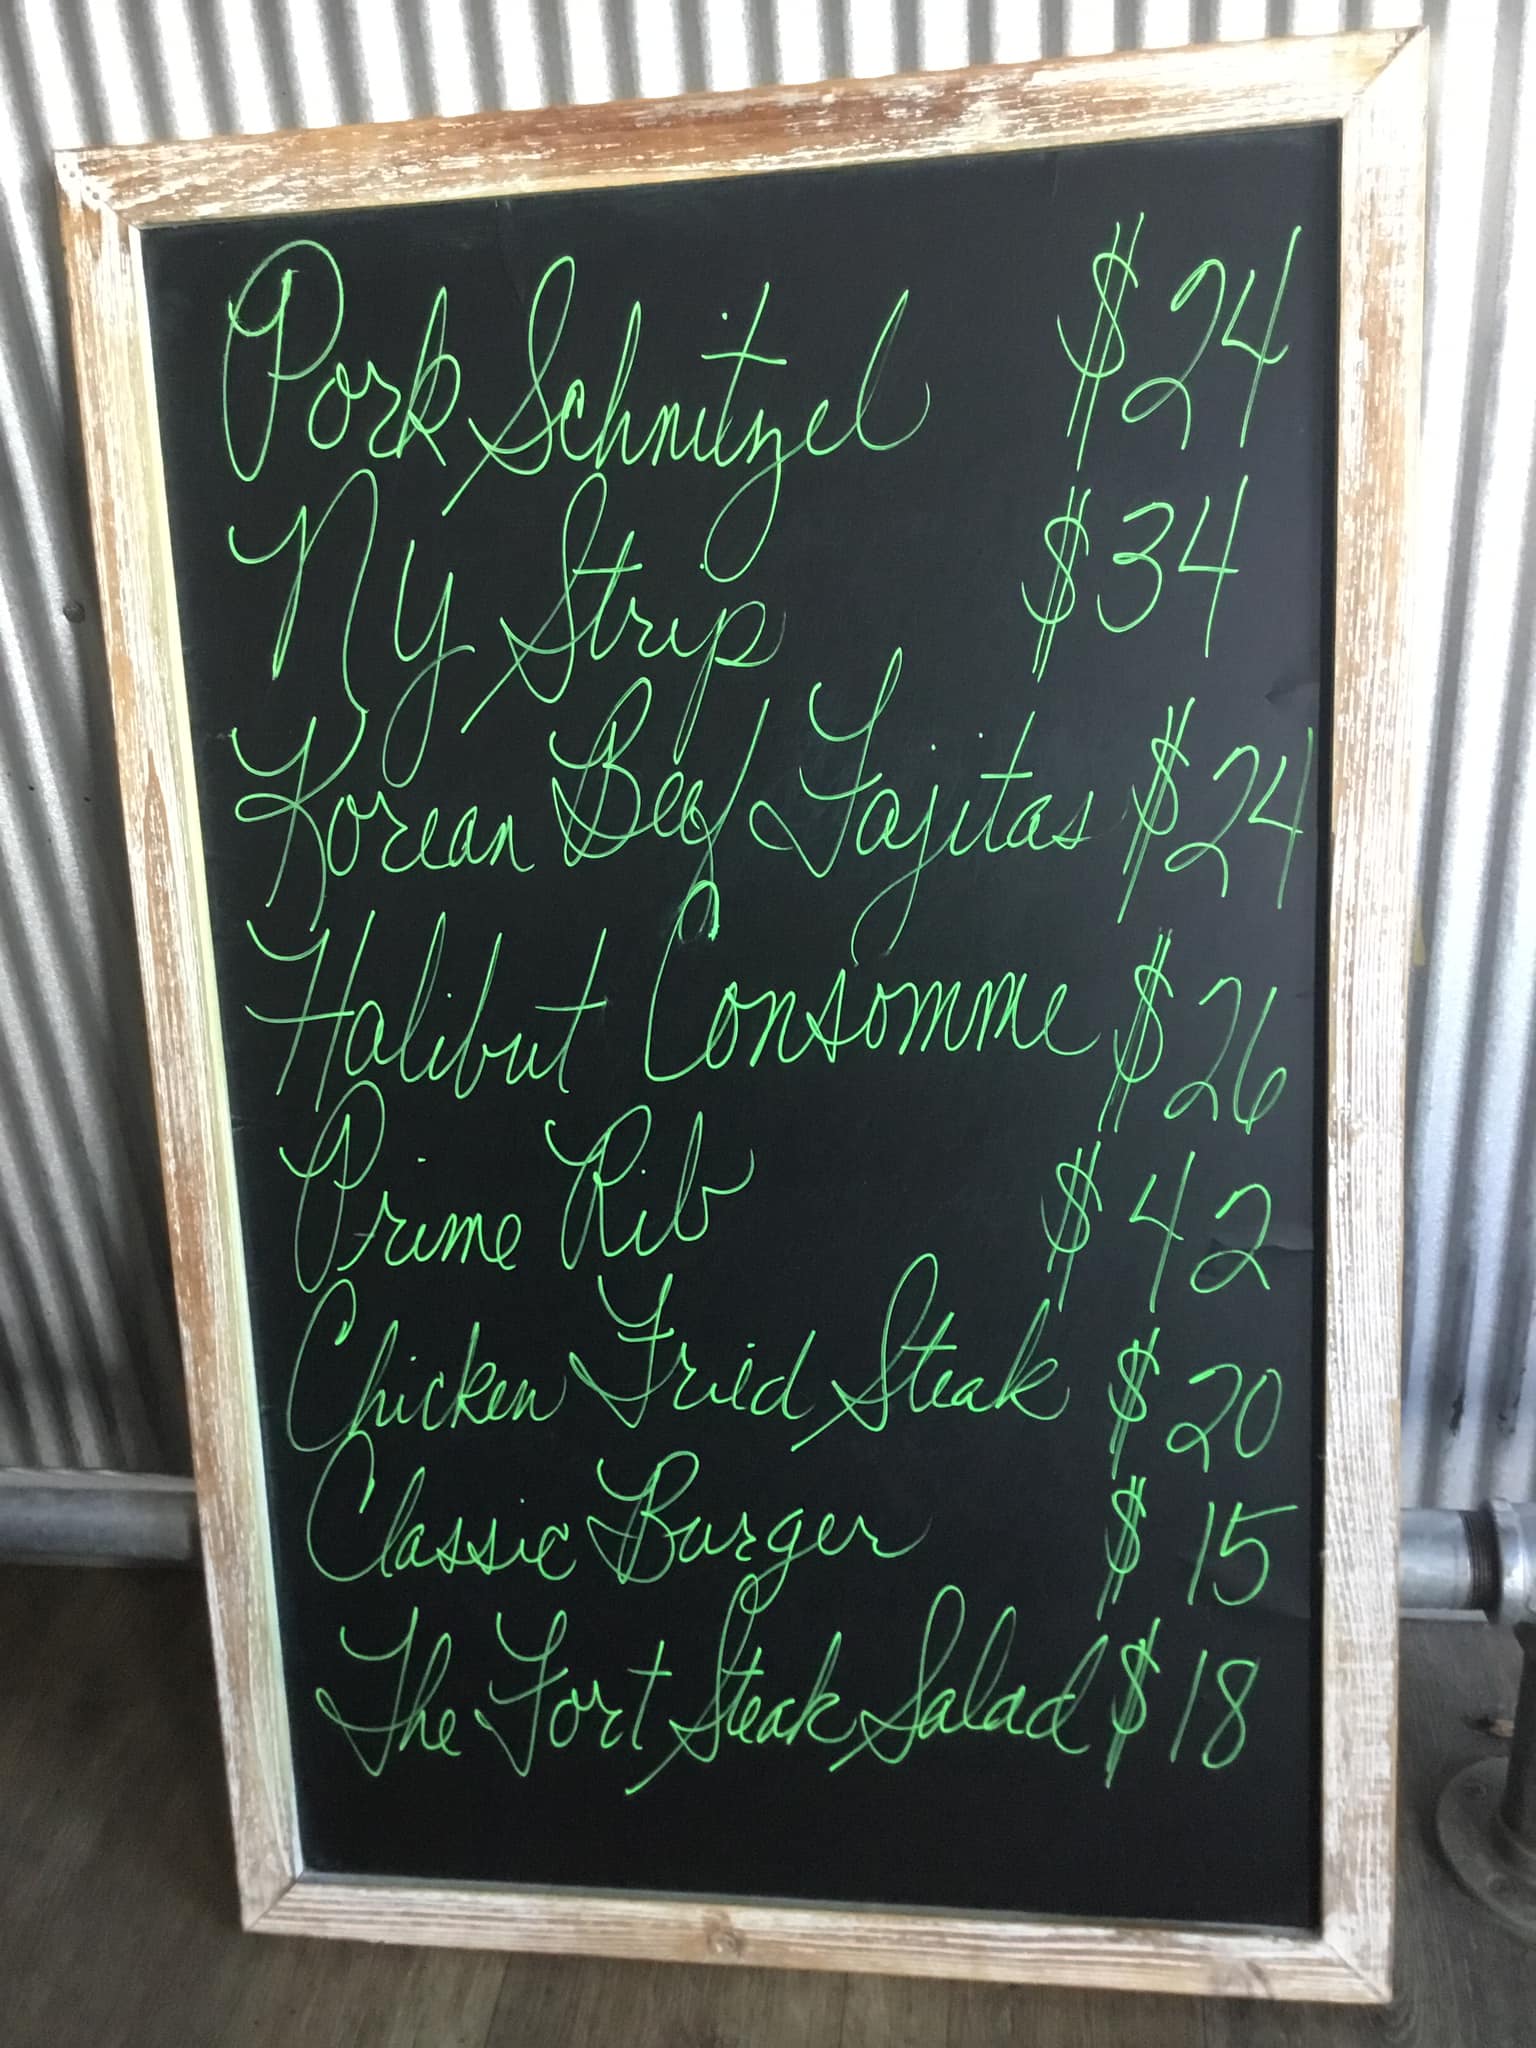 Pork Schnitzel $24
NY Strip $34
Korean Beef Fajitas $24
Halibut Consomme $26
Prime Rib $42
Chicken Fried Steak $20
Classic Burger $15
The Fort Steak Salad $18